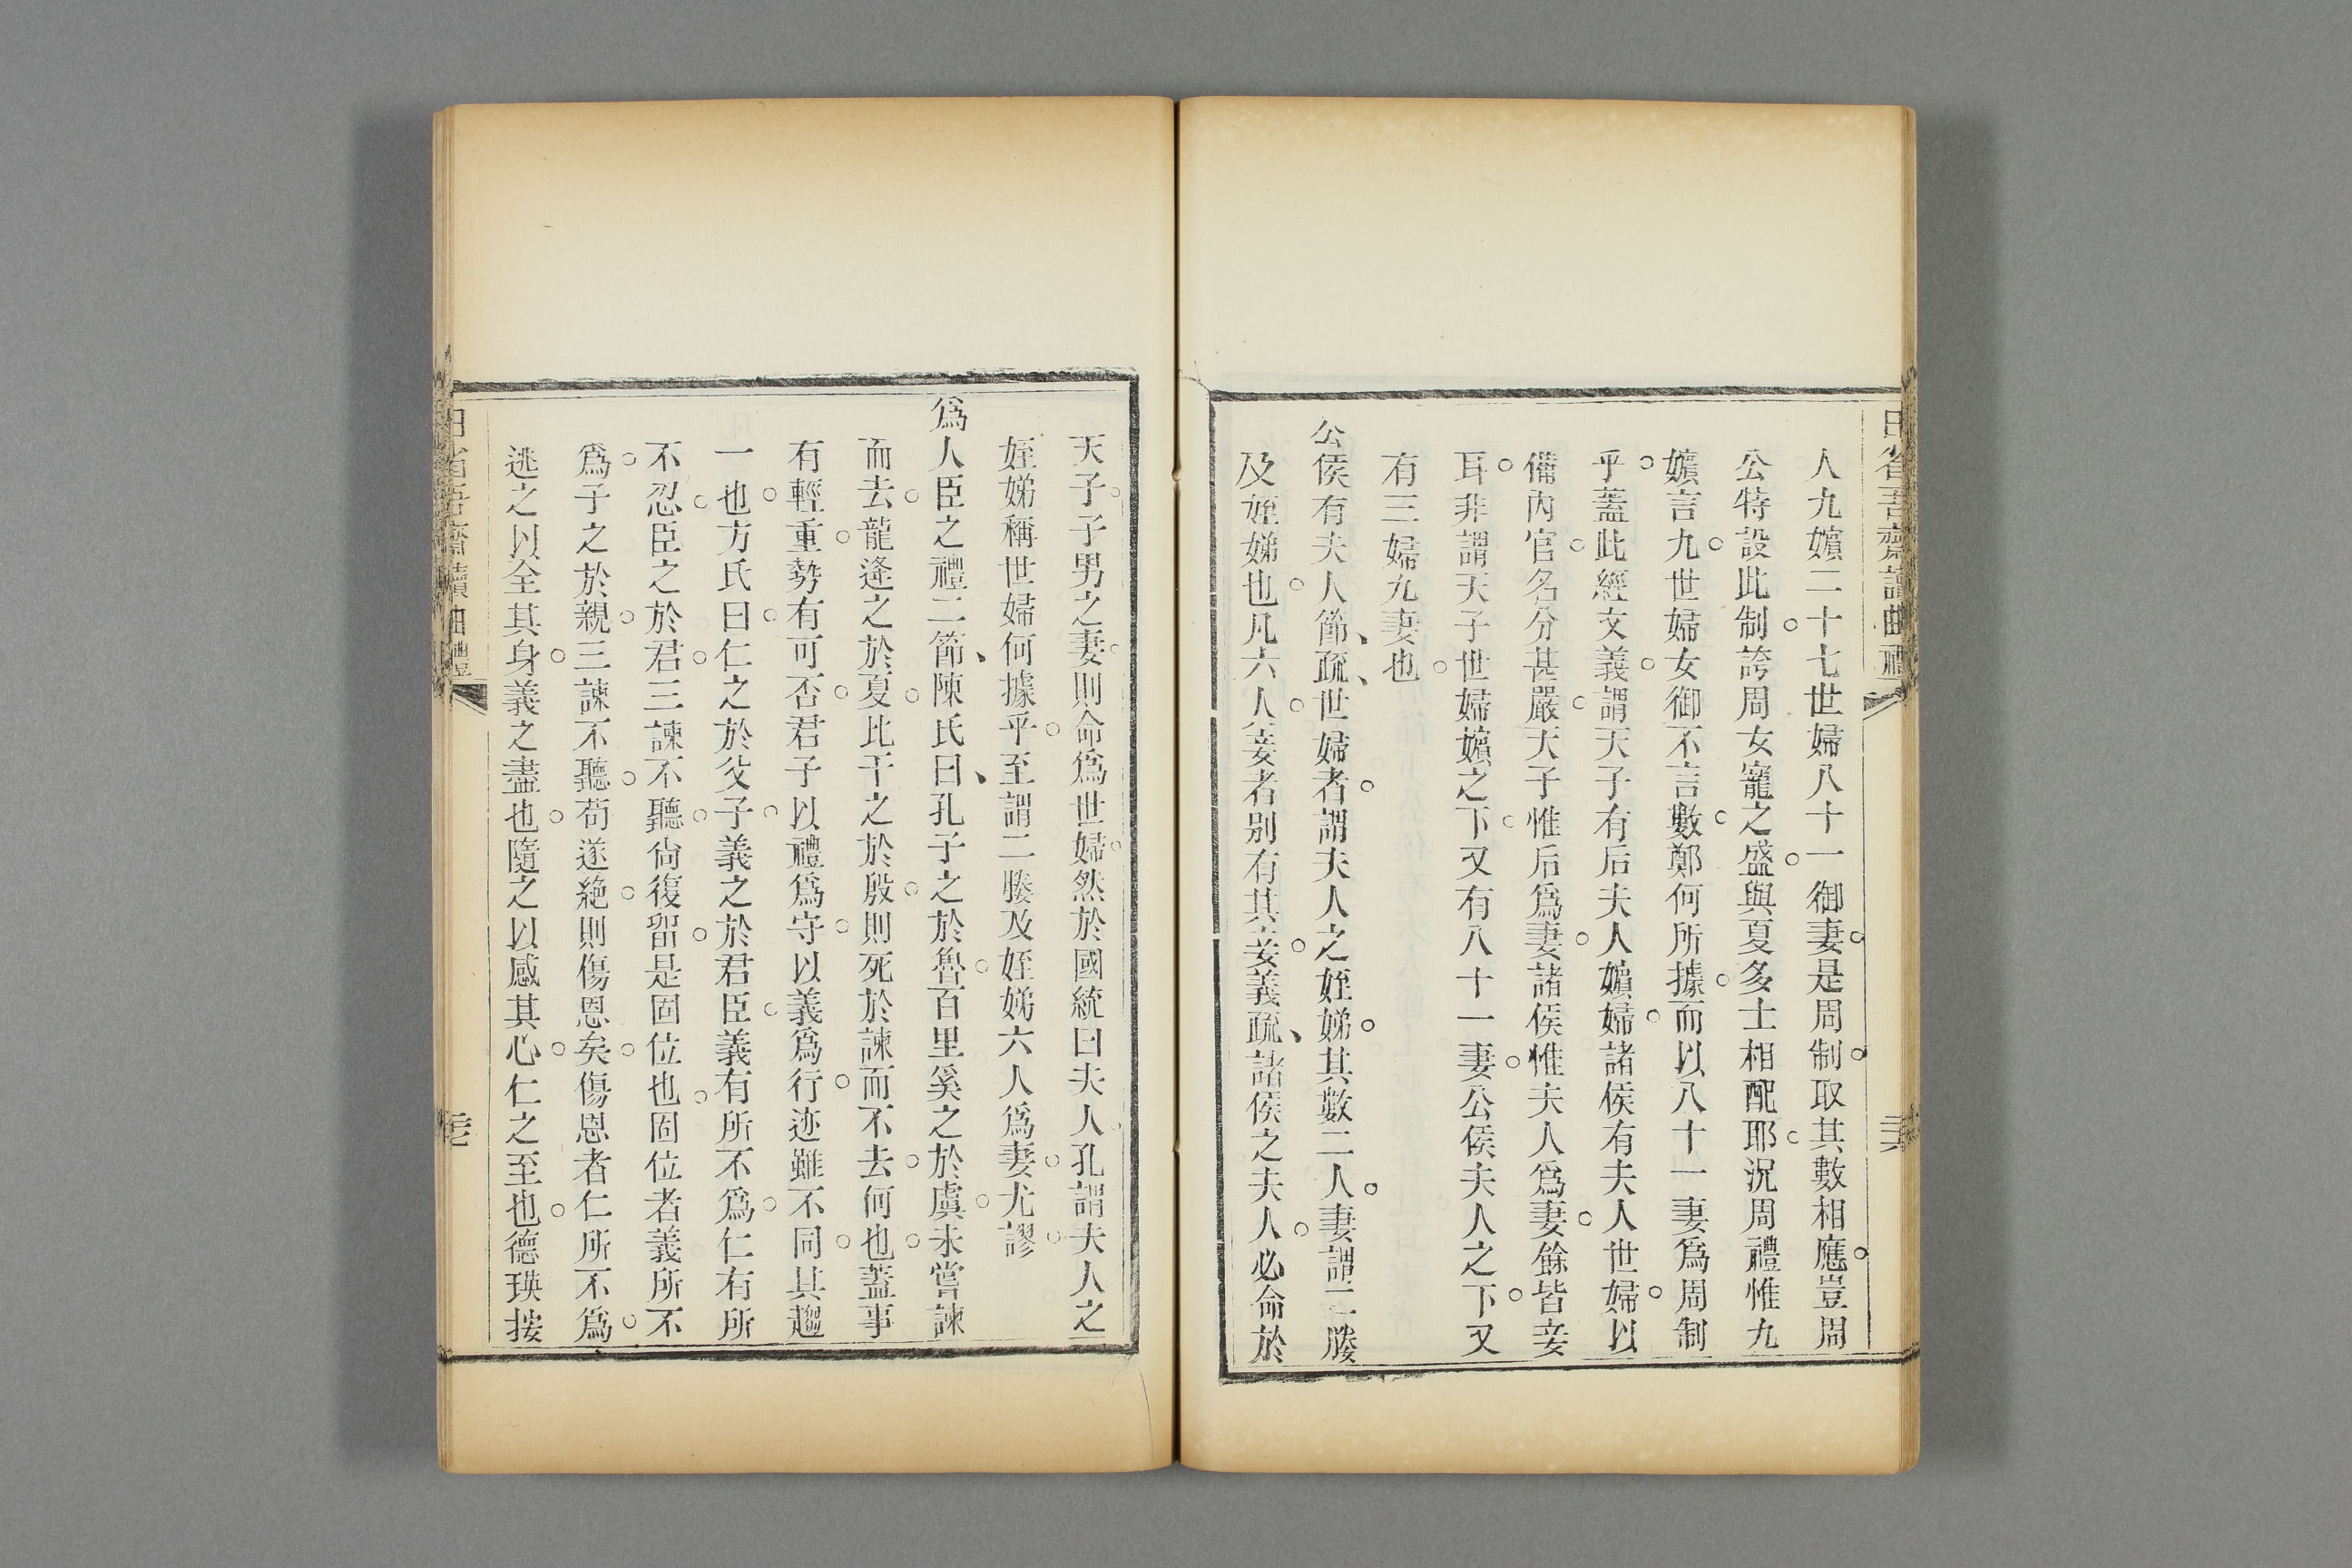 日省吾齋讀曲禮
人九嬪二十七世婦八十一御妻是周制取其數相應豈周
公特設此制誇周女寵之盛與夏多士相配耶況周禮惟九
嬪言九世婦女御不言數鄭何所據而以八十一妻爲周制
乎蓋此經文義謂天子有后夫人嬪婦諸侯有夫人世婦以
備內官名分甚嚴天子惟后爲妻諸侯惟夫人爲妻餘皆妾
耳非謂天子世婦嬪之下又有八十一妻公侯夫人之下又
有三婦九妻也
公侯有夫人節疏世婦者謂夫人之姪娣其數二人妻謂二媵
及姪娣也凡六人妾者別有其妾義疏諸侯之夫人必命於
天子子男之妻則命爲世婦然於國統曰夫人孔謂夫人之
姪娣稱世婦何據乎至謂二媵及姪娣六人爲妻尤謬
爲人臣之禮二節陳氏曰孔子之於魯百里奚之於虞未嘗諫
而去龍逢之於夏比干之於殷則死於諫而不去何也蓋事
有輕重勢有可否君子以禮爲守以義爲行迹雖不同其趨
一也方氏曰仁之於父子義之於君臣義有所不爲仁有所
不忍臣之於君三諫不聽尙復留是固位也固位者義所不
爲子之於親三諫不聽苟遂絶則傷恩矣傷恩者仁所不爲
逃之以全其身義之盡也隨之以感其心仁之至也德瑛按
日省吾齋讀曲禮